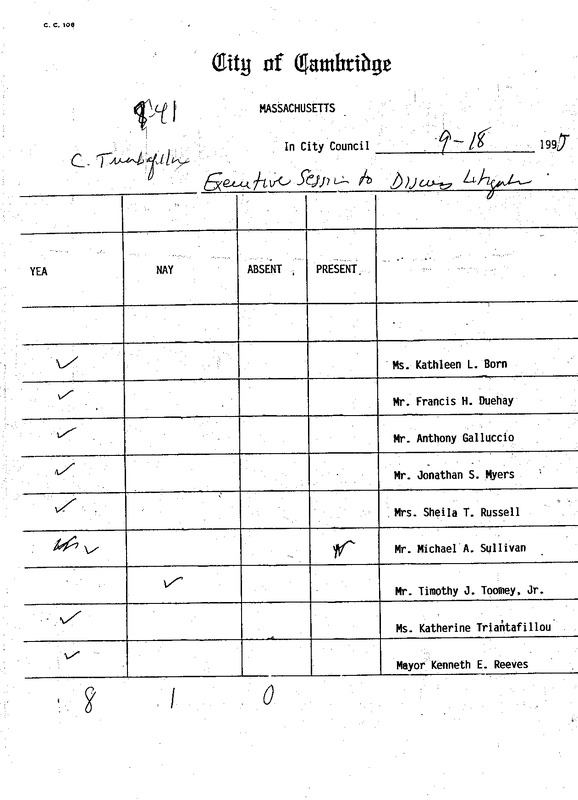 C. C. 108
City of Cambridge
41
MASSACHUSETTS
In City Council 9-18 1995
C.
Executive Session to Discuss Litigation
YEA NAY ABSENT PRESENT
✓ Ms. Kathleen L. Born
✓ Mr. Francis H. Duehay
✓ Mr. Anthony Galluccio
✓ Mr. Jonathan S. Myers
✓ Mrs. Sheila T. Russell
✓ Mr. Michael A. Sullivan
✓ Mr. Timothy J. Toomey, Jr.
✓ Ms. Katherine Triantafillou
✓ Mayor Kenneth E. Reeves
8 1 0